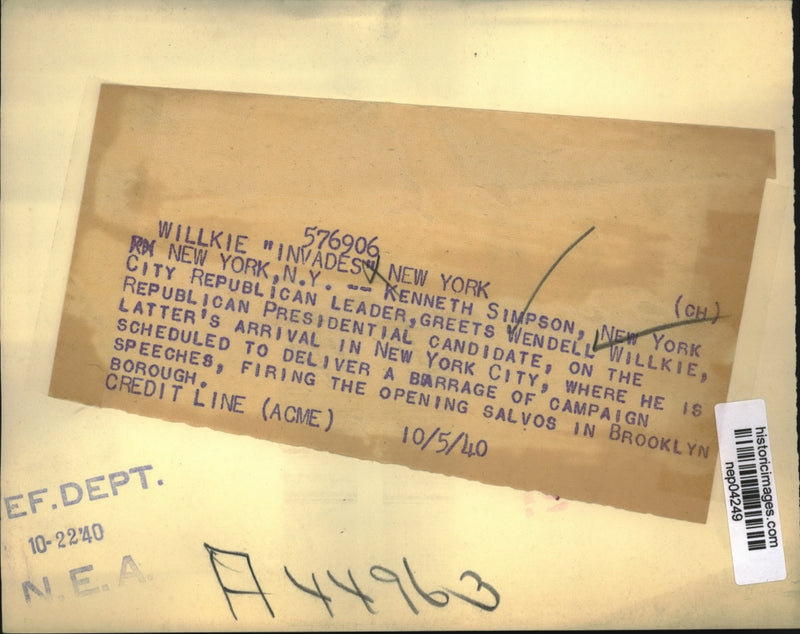 576906
WILLKIE "INVADES" NEW YORK
NEW YORK, N.Y. -- KENNETH SIMPSON, NEW YORK (CH)
CITY REPUBLICAN LEADER, GREETS WENDELL WILLKIE,
REPUBLICAN PRESIDENTIAL CANDIDATE, ON THE
LATTER'S ARRIVAL IN NEW YORK CITY, WHERE HE IS
SCHEDULED TO DELIVER A BARRAGE OF CAMPAIGN
SPEECHES, FIRING THE OPENING SALVOS IN BROOKLYN
BOROUGH.
CREDIT LINE (ACME) 10/5/40
EF. DEPT.
10-22'40
N.E.A.
A44963
historicimages.com
nep04249